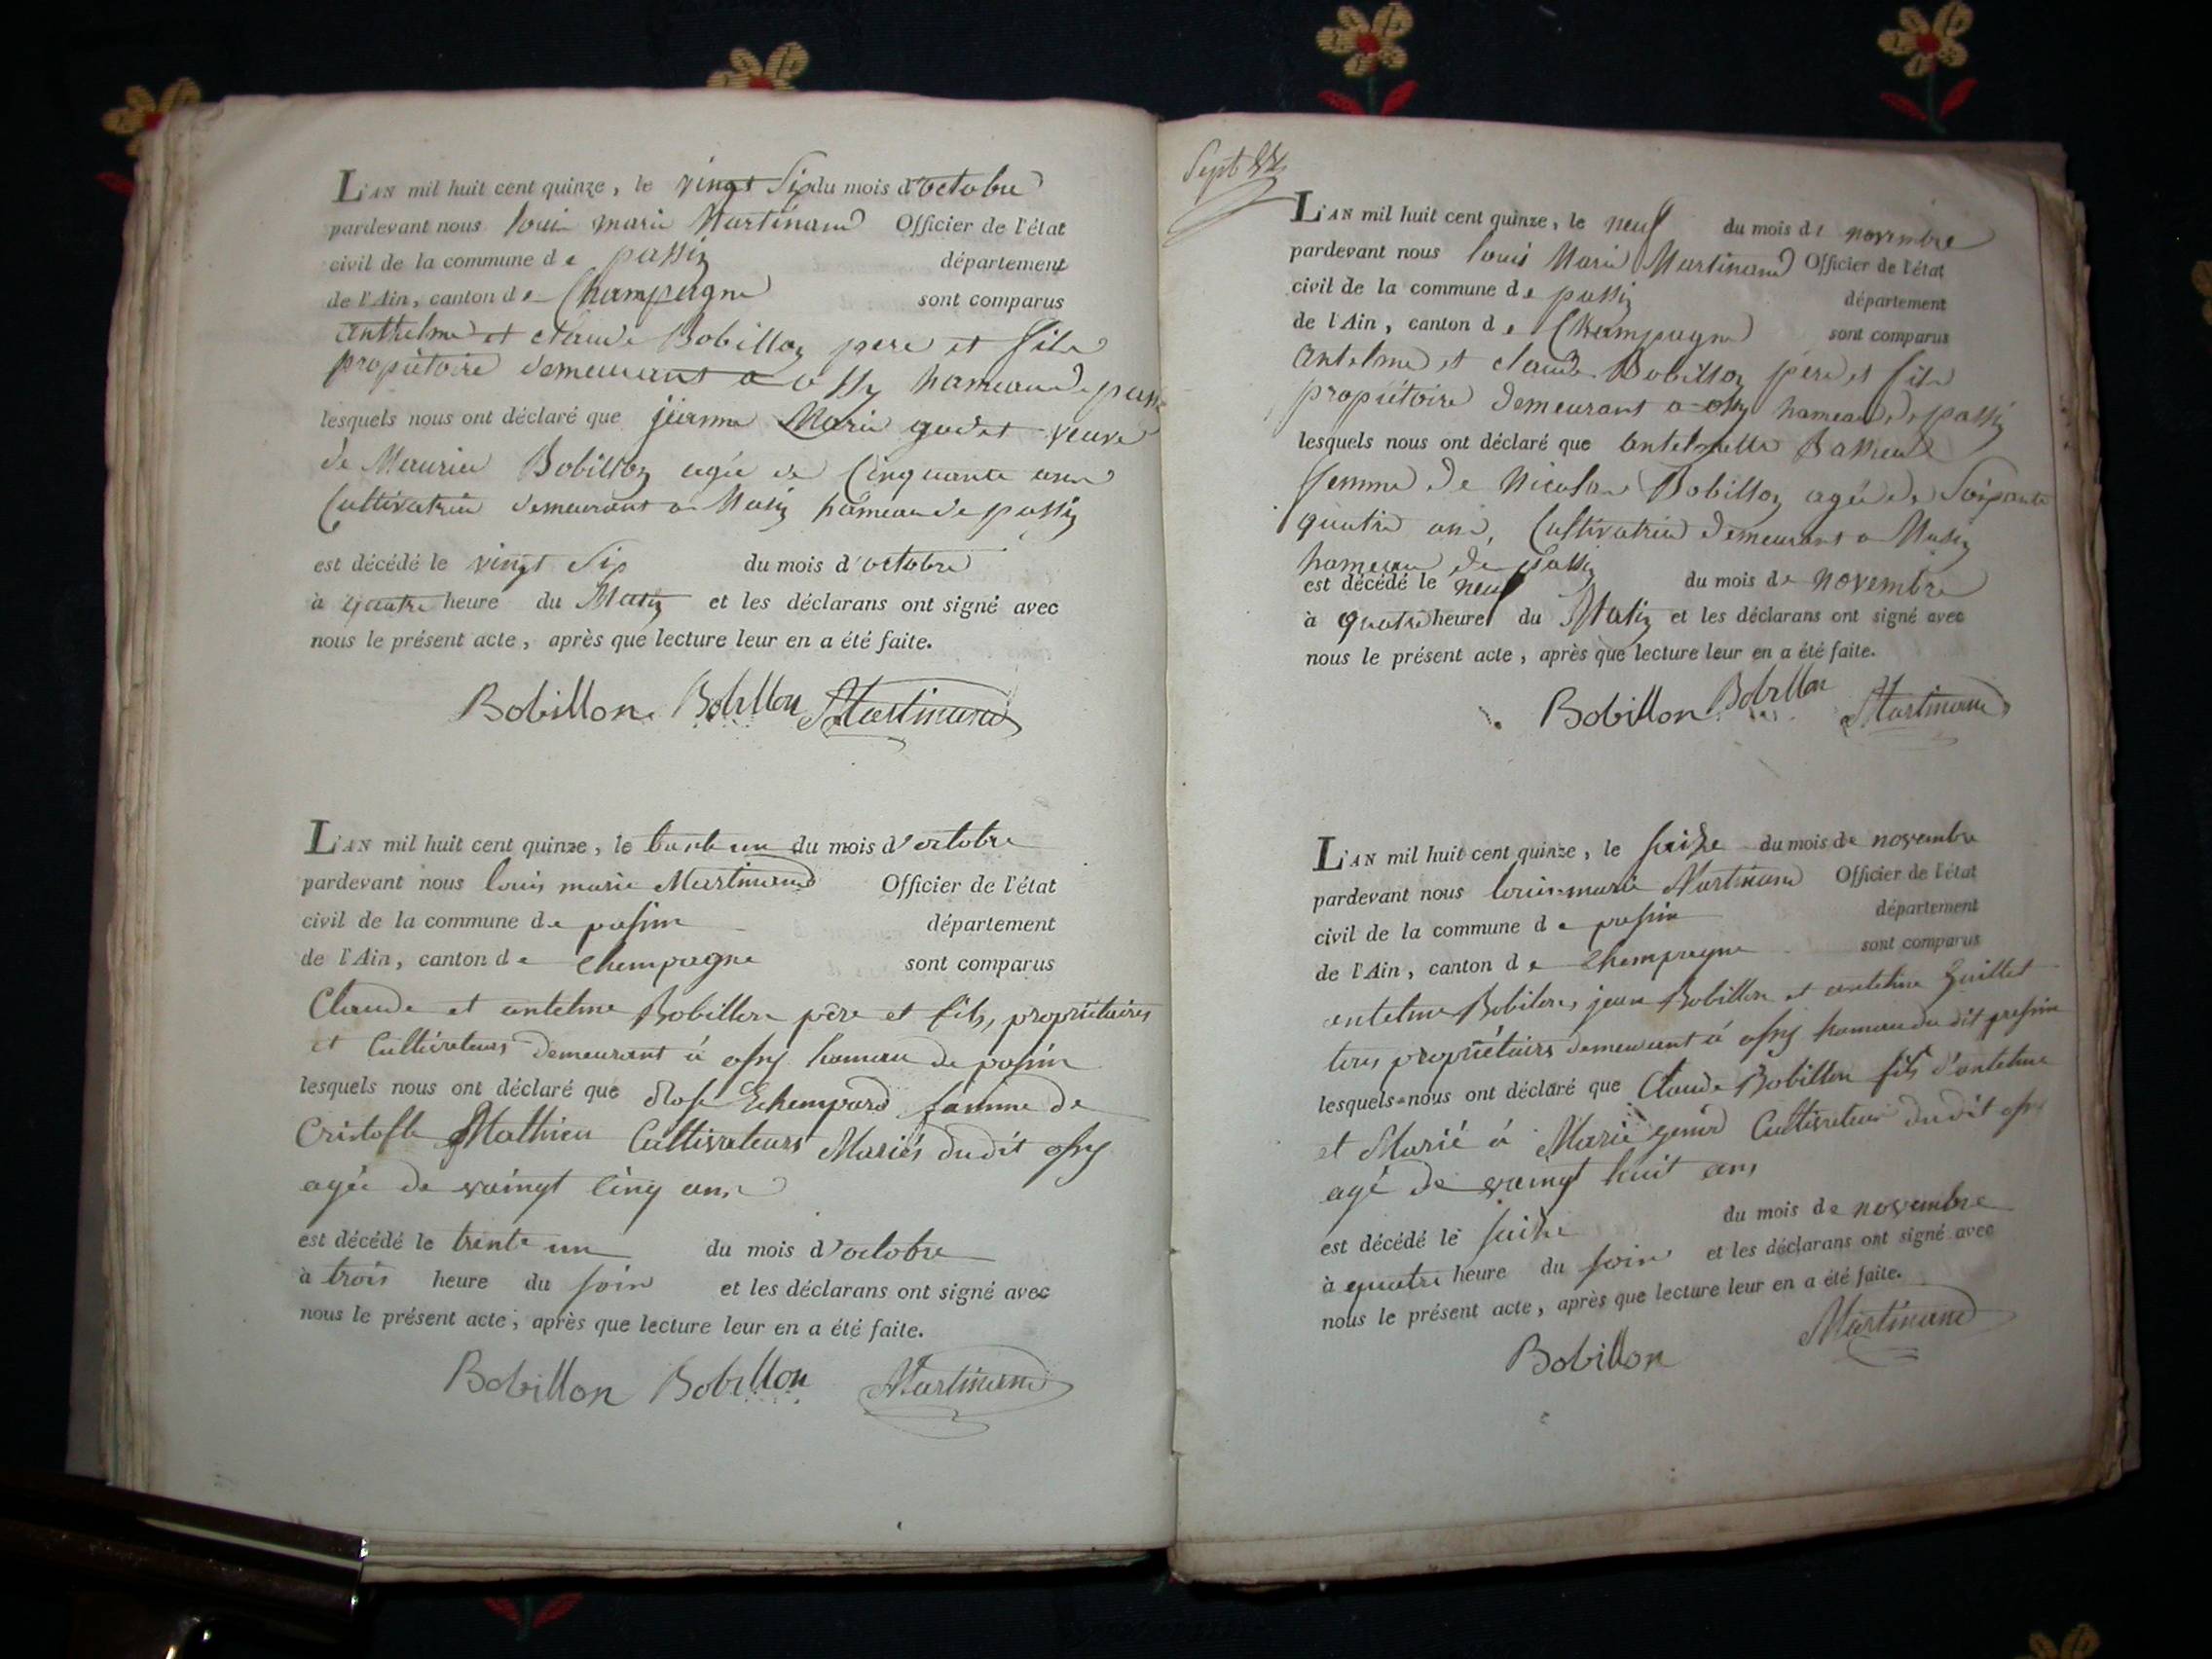 L'AN mil huit cent quinze, le vingt Six du mois d'octobre
pardevant nous louis marie Martinand Officier de l'état
civil de la commune de passin département
de l'Ain, canton de Champagne sont comparus
anthelme et claude Bobillon pere et fils
propiétoire demeurant a ossy hameau de
lesquels nous ont déclaré que jeanne Marie veuve
de Maurice Bobillon agée de Cinquante ans
Cultivatrice demeurant a hameau de passin
est décédé le vingt Six du mois d'octobre
à quatre heure du Matin et les déclarans ont signé avec
nous le présent acte, après que lecture leur en a été faite.
Bobillon Bobillon Martinand
L'AN mil huit cent quinze, le trente un du mois d'octobre
pardevant nous louis marie Martinand Officier de l'état
civil de la commune de passin département
de l'Ain, canton de Champagne sont comparus
Claude et antelme Bobillon père et fils, propriétaires
et Cultivateurs demeurant à ossy hameau de passin
lesquels nous ont déclaré que Rose femme de
Cristofle Mathieu Cultivateurs Mariés dudit ossy
agée de vaingt cinq ans
est décédé le trente un du mois d'octobre
à trois heure du soir et les déclarans ont signé avec
nous le présent acte, après que lecture leur en a été faite.
Bobillon Bobillon Martinand
Sept
L'AN mil huit cent quinze, le neuf du mois de novembre
pardevant nous louis Marie Martinand Officier de l'état
civil de la commune de passin département
de l'Ain, canton de Champagne sont comparus
antelme et claude Bobillon père et fils
propiétoire demeurant a ossy hameau de passin
lesquels nous ont déclaré que
femme de Nicolas Bobillon agée de Soixante
quatre ans, Cultivatrice demeurant a
hameau de Passin
est décédé le neuf du mois de novembre
à quatre heure du Matin et les déclarans ont signé avec
nous le présent acte, après que lecture leur en a été faite.
Bobillon Bobillon Martinand
L'AN mil huit cent quinze, le saize du mois de novembre
pardevant nous louis marie Martinand Officier de l'état
civil de la commune de passin département
de l'Ain, canton de Champagne sont comparus
antelme Bobillon, jean Bobillon et antelme Guillet
tous propriétaires demeurant à ossy hameau du dit passin
lesquels nous ont déclaré que Claude Bobillon fils d'antelme
et Marié à Marie Cultivateur dudit ossy
agé de vaingt huit ans
est décédé le saize du mois de novembre
à quatre heure du soir et les déclarans ont signé avec
nous le présent acte, après que lecture leur en a été faite.
Bobillon Martinand